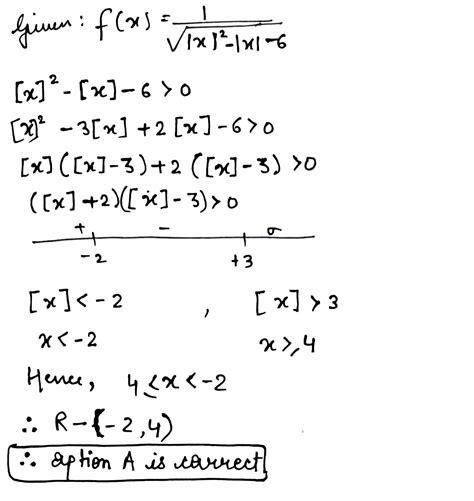 Given : f(x) = 1 / √|x|²-|x|-6
[x]² - [x] - 6 > 0
[x]² - 3[x] + 2[x] - 6 > 0
[x]([x]-3) + 2([x]-3) > 0
([x]+2)([x]-3) > 0
+ -
-2 +3
[x] < -2 , [x] > 3
x < -2 x ≥ 4
Hence, 4 ≤ x < -2
∴ R - {-2, 4)
∴ option A is correct